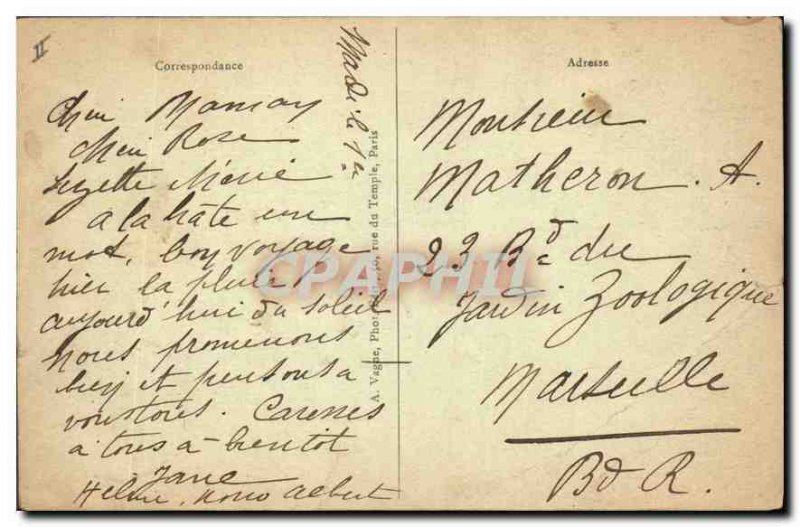 II
Correspondance
Mardi le 1er
Adresse
Rose
Suzette
a la hâte un
mot, bon voyage
hier la pluie
aujourd'hui du soleil
nous promenons
bien et pensons a
vous tous. Caresses
a tous a-bientot
Jane
albert
A. Vagne, Phot rue du Temple, Paris
CPAPHIL
Monsieur
Matheron. A.
23 Bd du
Jardin Zoologique
Marseille
B d R.